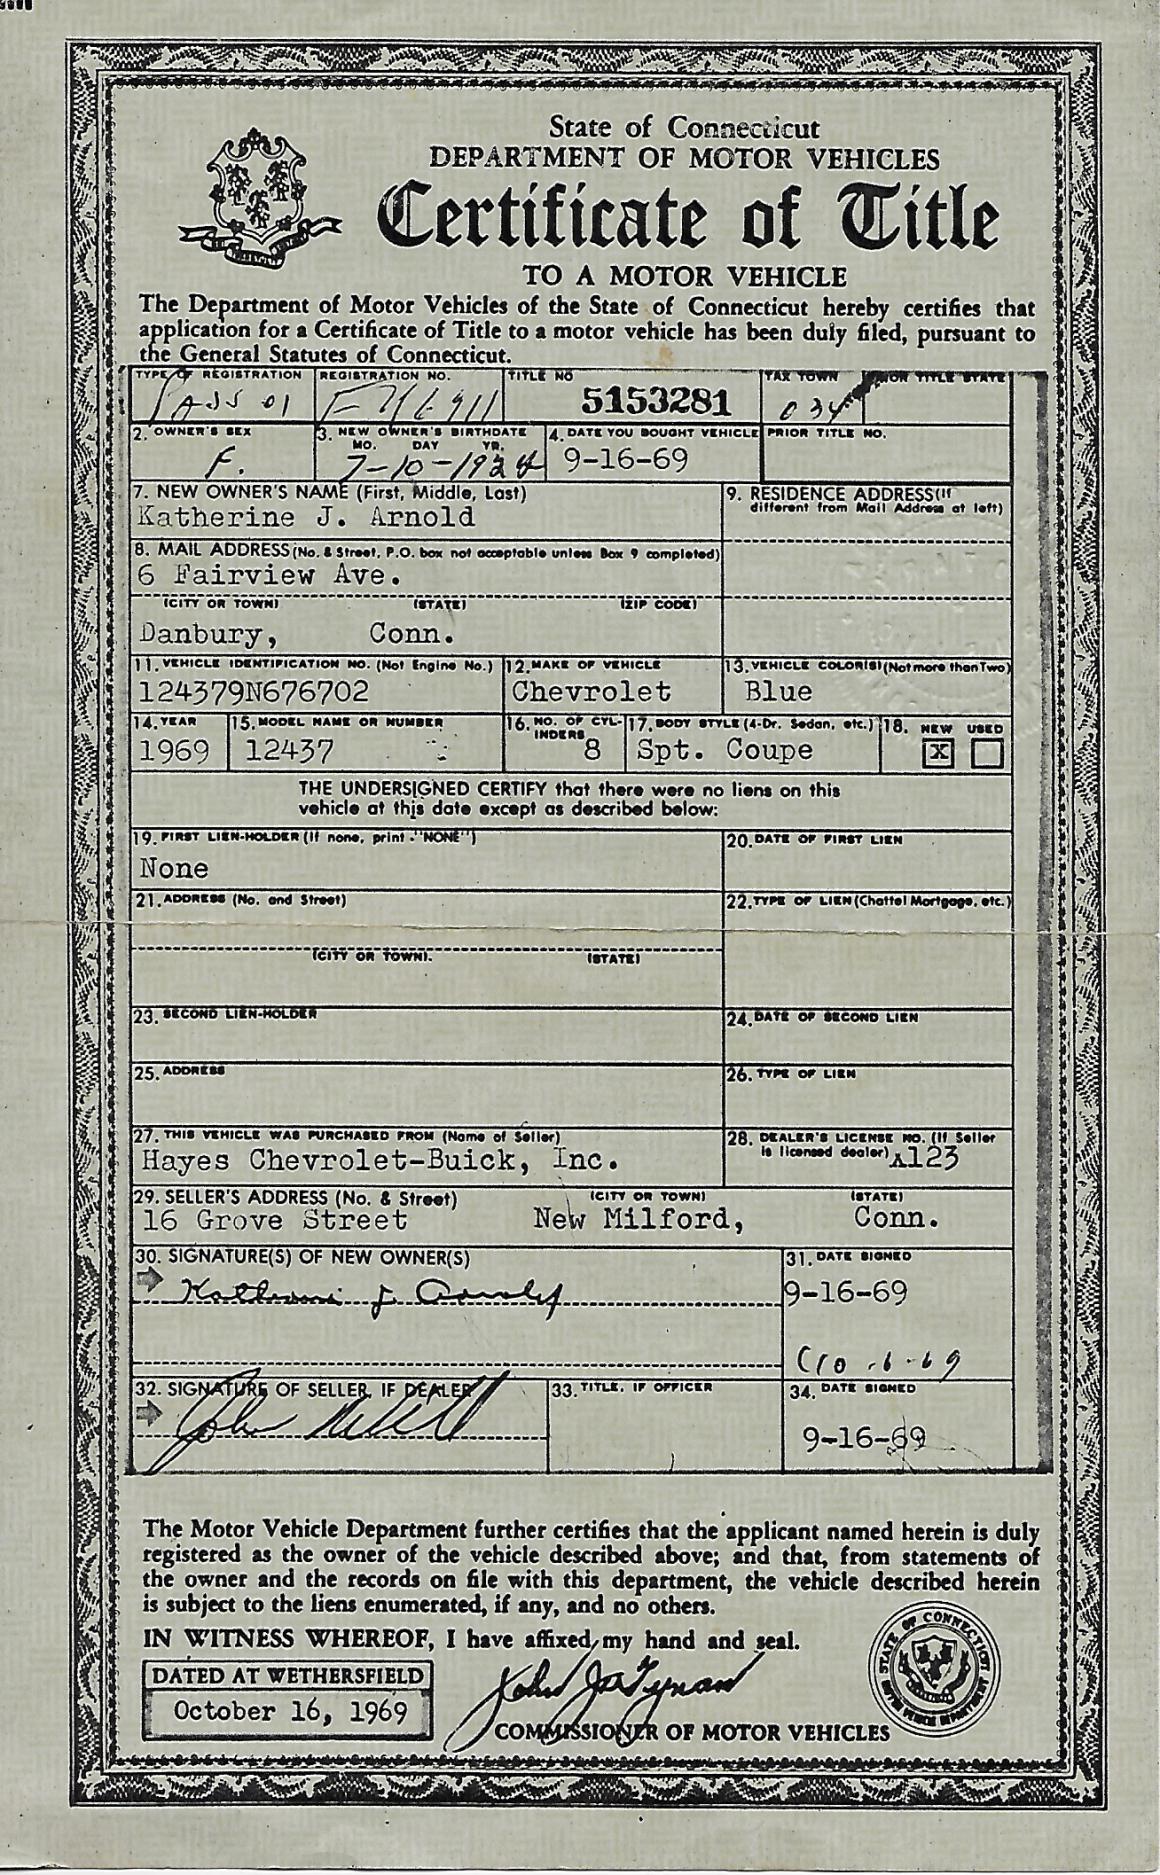 State of Connecticut
DEPARTMENT OF MOTOR VEHICLES
Certificate of Title
TO A MOTOR VEHICLE
The Department of Motor Vehicles of the State of Connecticut hereby certifies that
application for a Certificate of Title to a motor vehicle has been duly filed, pursuant to
the General Statutes of Connecticut.
TYPE OF REGISTRATION REGISTRATION NO. TITLE NO TAX TOWN PRIOR TITLE STATE
PASS 01 5153281 034
2. OWNER'S SEX 3. NEW OWNER'S BIRTHDATE 4. DATE YOU BOUGHT VEHICLE PRIOR TITLE NO.
MO. DAY YR.
F. 7-10-1924 9-16-69
7. NEW OWNER'S NAME (First, Middle, Last) 9. RESIDENCE ADDRESS (If
different from Mail Address at left)
Katherine J. Arnold
8. MAIL ADDRESS (No. & Street, P.O. box not acceptable unless Box 9 completed)
6 Fairview Ave.
(CITY OR TOWN) (STATE) (ZIP CODE)
Danbury, Conn.
11. VEHICLE IDENTIFICATION NO. (Not Engine No.) 12. MAKE OF VEHICLE 13. VEHICLE COLOR(S) (Not more than Two)
124379N676702 Chevrolet Blue
14. YEAR 15. MODEL NAME OR NUMBER 16. NO. OF CYL- 17. BODY STYLE (4-Dr. Sedan, etc.) 18. NEW USED
INDERS
1969 12437 8 Spt. Coupe X
THE UNDERSIGNED CERTIFY that there were no liens on this
vehicle at this date except as described below:
19. FIRST LIEN-HOLDER (If none, print "NONE") 20. DATE OF FIRST LIEN
None
21. ADDRESS (No. and Street) 22. TYPE OF LIEN (Chattel Mortgage, etc.)
(CITY OR TOWN). (STATE)
23. SECOND LIEN-HOLDER 24. DATE OF SECOND LIEN
25. ADDRESS 26. TYPE OF LIEN
27. THIS VEHICLE WAS PURCHASED FROM (Name of Seller) 28. DEALER'S LICENSE NO. (If Seller
is licensed dealer) A123
Hayes Chevrolet-Buick, Inc.
29. SELLER'S ADDRESS (No. & Street) (CITY OR TOWN) (STATE)
16 Grove Street New Milford, Conn.
30. SIGNATURE(S) OF NEW OWNER(S) 31. DATE SIGNED
Katherine J Arnold 9-16-69
32. SIGNATURE OF SELLER, IF DEALER 33. TITLE, IF OFFICER 34. DATE SIGNED
John 9-16-69
The Motor Vehicle Department further certifies that the applicant named herein is duly
registered as the owner of the vehicle described above; and that, from statements of
the owner and the records on file with this department, the vehicle described herein
is subject to the liens enumerated, if any, and no others.
IN WITNESS WHEREOF, I have affixed my hand and seal.
DATED AT WETHERSFIELD
October 16, 1969
John J. Tynan
COMMISSIONER OF MOTOR VEHICLES
STATE OF CONNECTICUT
MOTOR VEHICLE DEPARTMENT